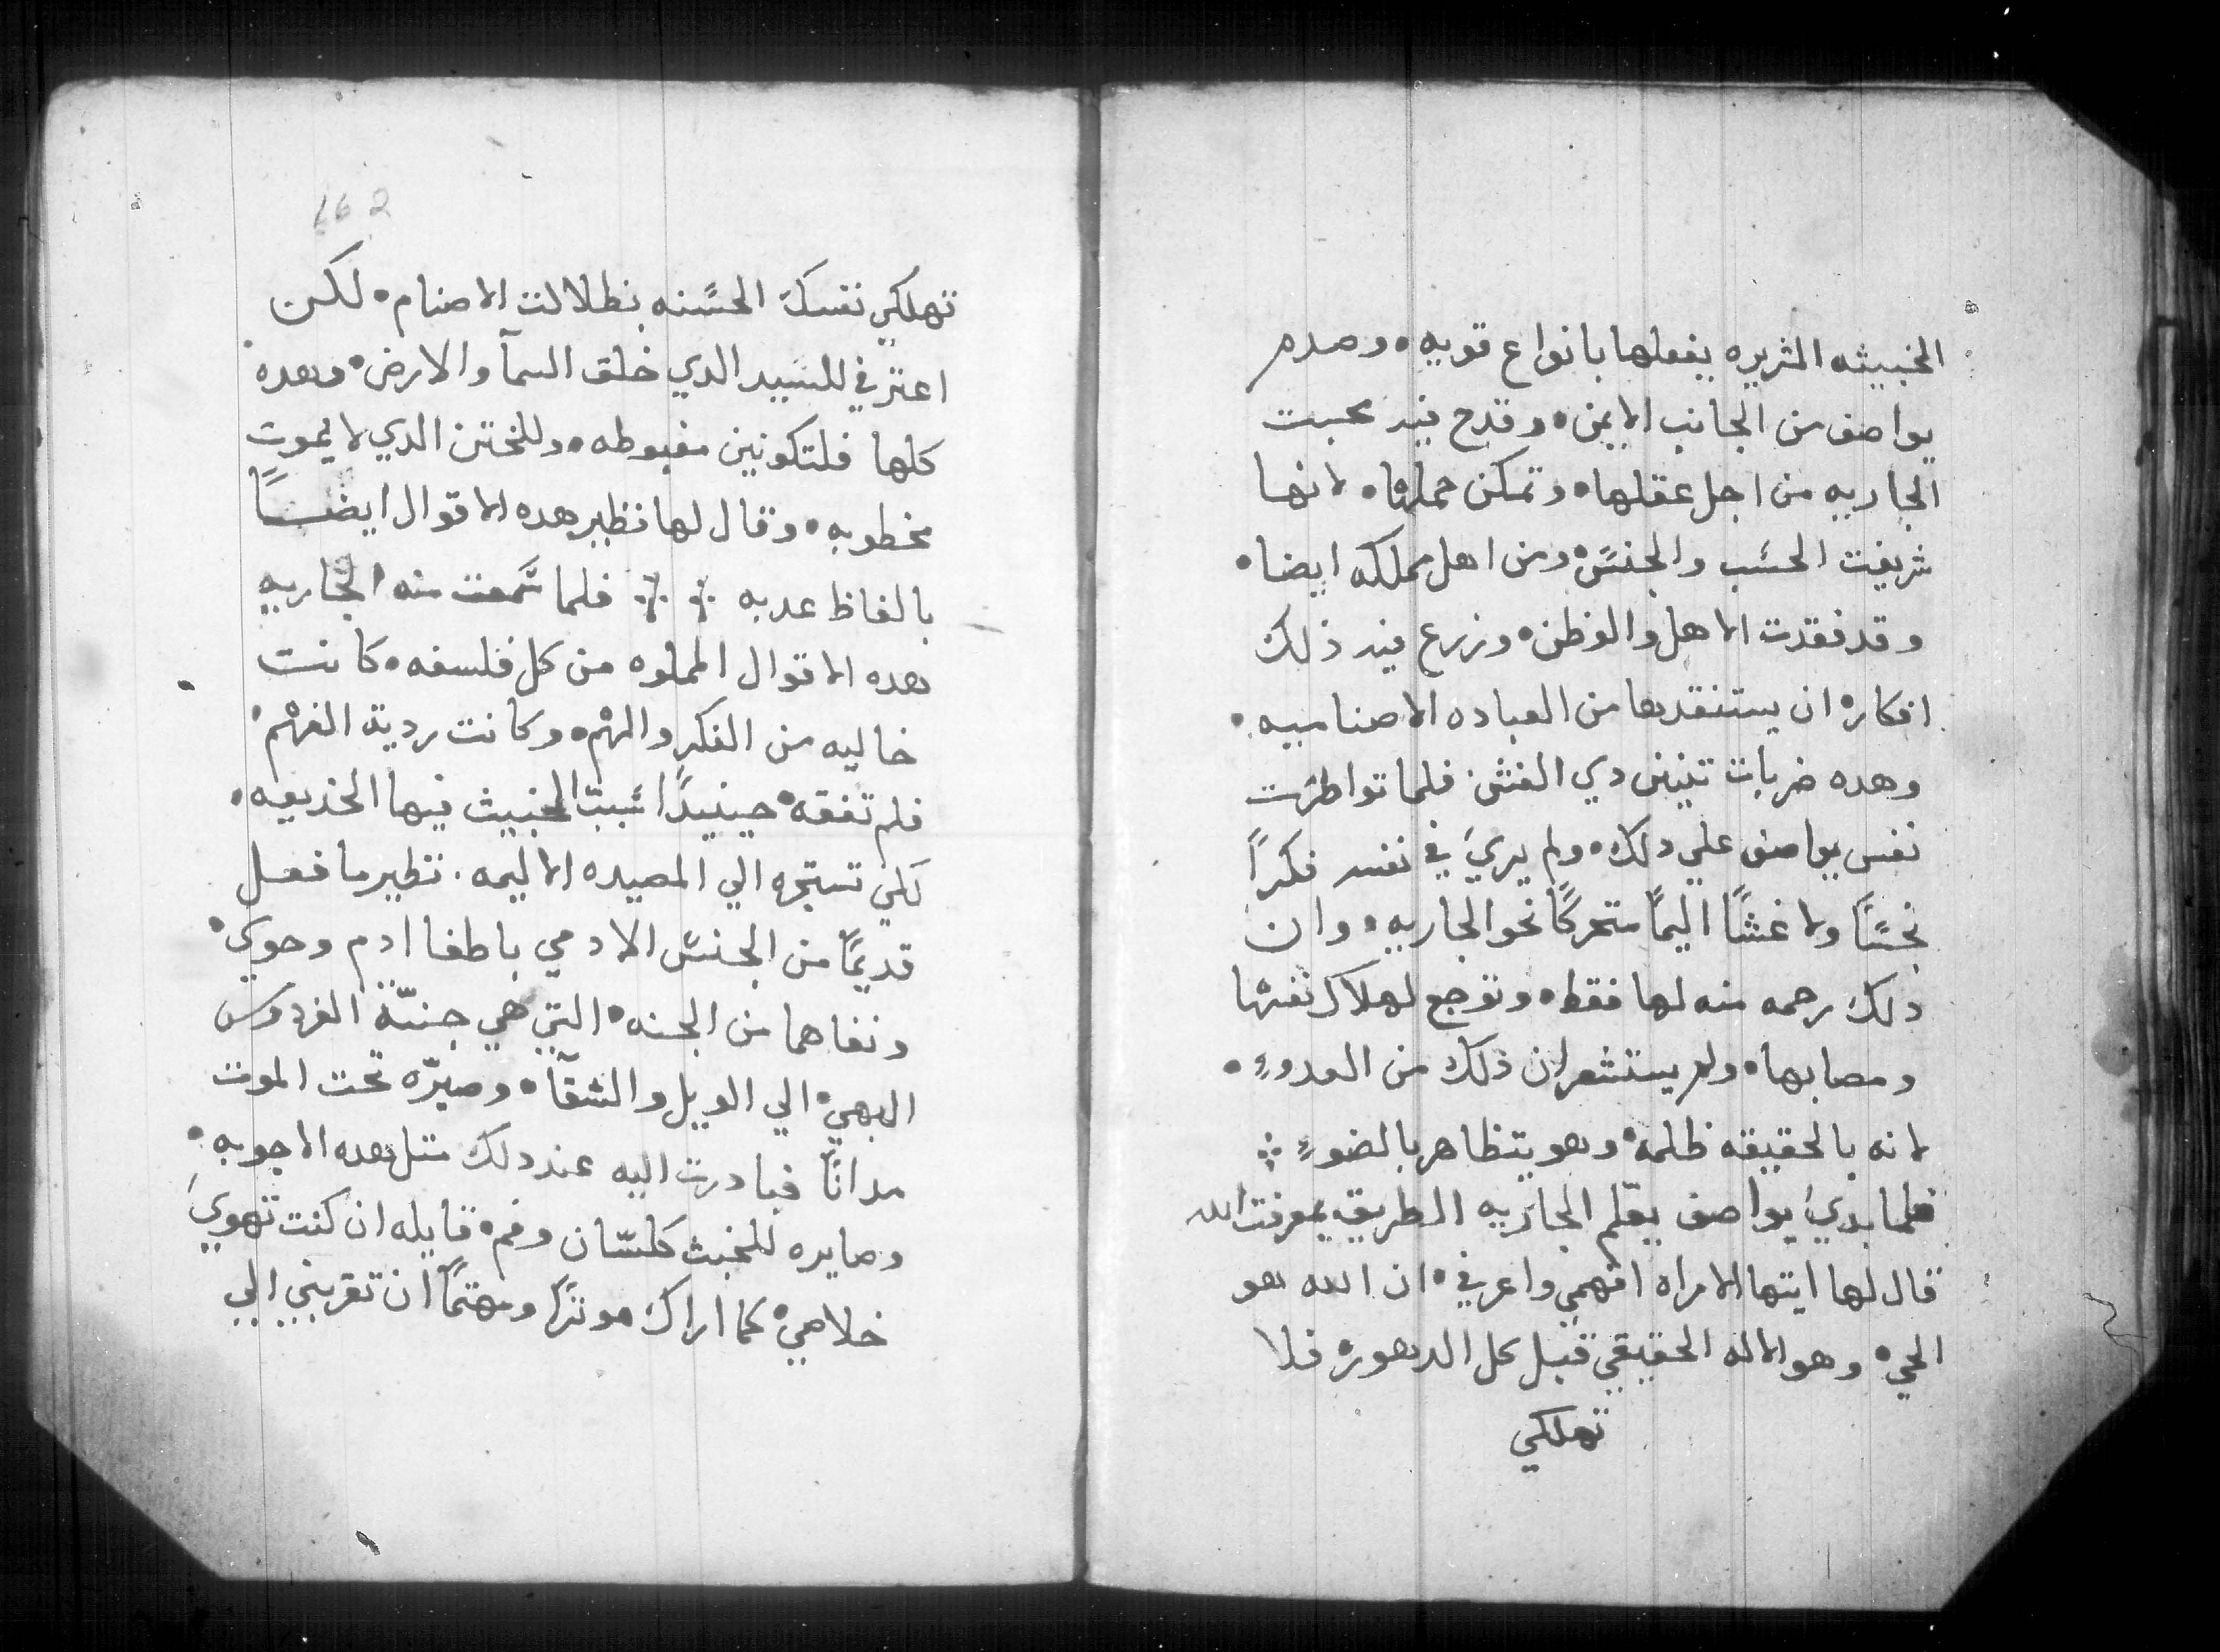 الخبيثه الشريره يفعلها بانواع قويه • وصدم
يواصف من الجانب الايمن • وقدح فيه محبت
الجاريه من اجل عقلها • وتمكن حملها • لانها
شريفت الحسَب والجنسً • ومن اهل مملكه ايضا •
وقد فقدت الاهل والوطن • وزرع فيه ذلك
افكاره ان يستنقدها من العباده الاصناميه •
وهده ضربات تنين دي الغش • فلما تواطرت
نفس يواصف علي دلك • ولم يريَ في نفسه فكراً
نجسًا ولا غشًا اليمًا متحركًا نحو الجاريه • وان
دلك رحمه منه لها فقط • وتوجع لهلاك نفسها
ومصابها • ولم يستشعر ان ذلك من العدوءِ •
لانه بالحقيقه ظلمه • وهو يتظاهر بالضوءِ ⁘
فلما بديَ يواصف يعلّم الجاريه الطريق بمعرفت الله
قال لها ايتها الامراه افهمي واعرفي • ان الله هو
الحي • وهو الاله الحقيقي قبل كل الدهور • فلا
تهلكي
162
تهلكي نفسك الحسَنه بظلالت الاصنام • لكن
اعترفي للسَيد الدي خلق السمآ والارض • وهده
كلها فلتكونين مغبوطه • وللختن الدي لا يموت
مخطوبه • وقال لها نظير هده الاقوال ايضــًا
بالفاظ عدبه ⁒ ⁒ فلما سَمعت منه الجاريه
هده الاقوال المملوه من كل فلسفه • كانت
خاليه من الفكر والهم • وكانت ردية الفهم •
فلم تفقه • حينيدًا سَبب الخبيث فيها الخديعه •
لكي تستجره الي المصيده الاليمه • نظير ما فعل
قديمًا من الجنسً الادمي باطغا ادم وحوي •
ونفاهما من الجنه • التي هي جنّة الفردوس
البهي • الي الويل والشقآ • وصيرّه تحت الموت
مدانًا فبادرت اليه عند دلك مثل هده الاجوبه •
وصايره للخبث كلسّان وفم • قايله ان كنت تهويَ
خلاصي • كما اراك موثرًا ومهتمًا ان تقربني الي